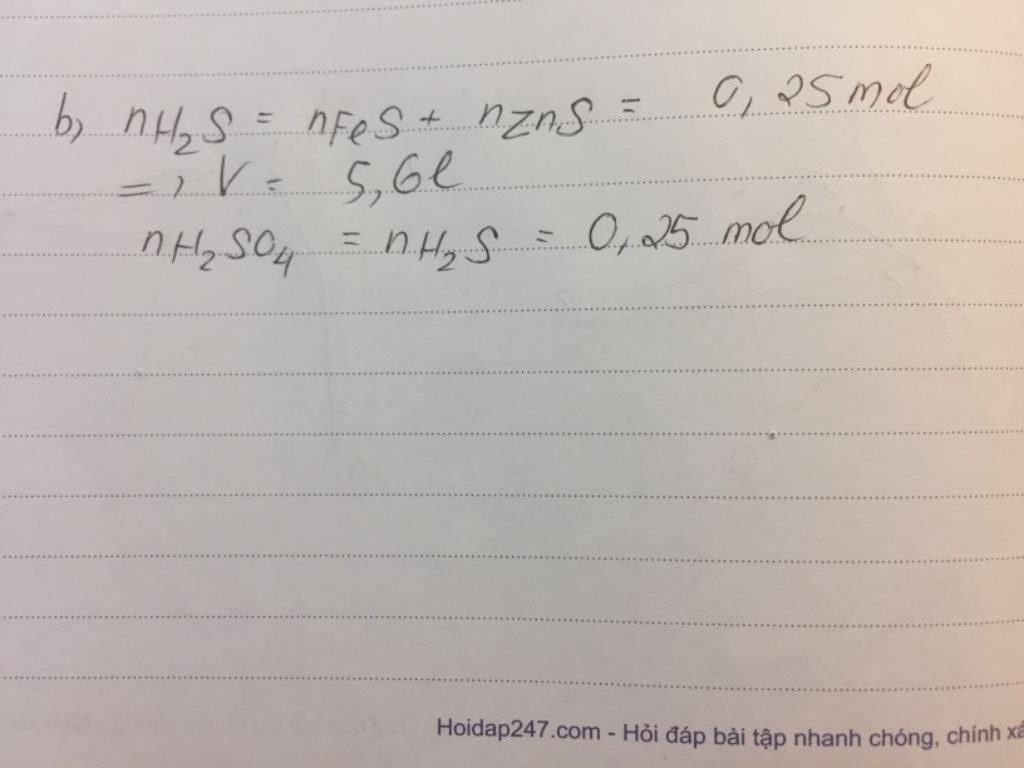 b, nH₂S = nFeS + nZnS = 0,25 mol
=> V = 5,6l
nH₂SO₄ = nH₂S = 0,25 mol
Hoidap247.com - Hỏi đáp bài tập nhanh chóng, chính xá